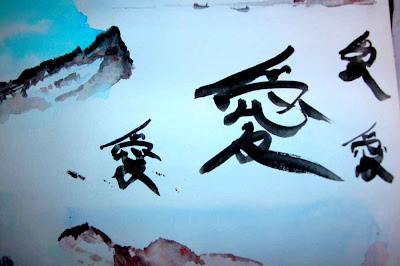 愛
愛
愛
愛